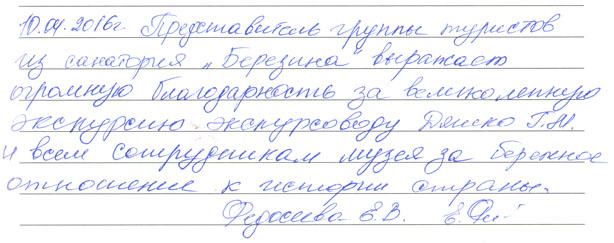 10.04.2016г. Представитель группы туристов
из санатория „Березина" выражает
огромную благодарность за великолепную
экскурсию экскурсоводу Г.М.
и всем сотрудникам музея за бережное
отношение к истории страны.
Федосеева Е.В.